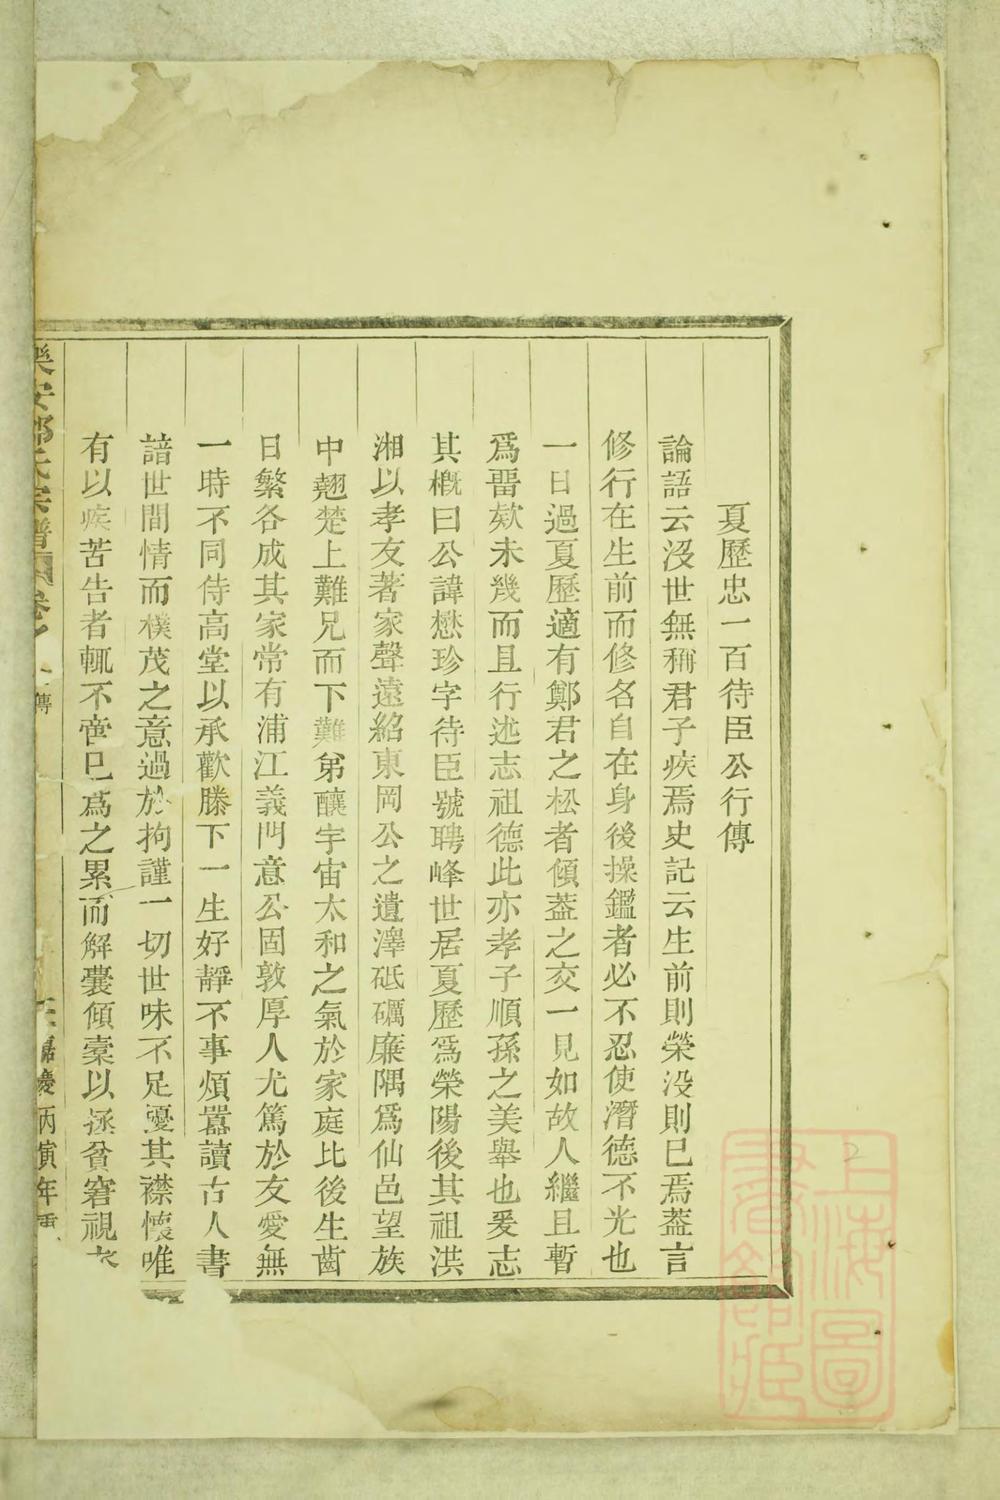 夏歷忠一百待臣公行傳
論語云沒世無稱君子疾焉史記云生前則榮没則已焉葢言
修行在生前而修名自在身後操鑑者必不忍使潛德不光也
一日過夏歷適有鄭君之松者傾葢之交一見如故人繼且暫
爲畱欵未幾而且行述志祖德此亦孝子順孫之美舉也爰志
其槪曰公諱懋珍字待臣號聘峰世居夏歷爲榮陽後其祖洪
湘以孝友著家聲遠紹東岡公之遺澤砥礪廉隅爲仙邑望族
中翹楚上難兄而下難弟釀宇宙太和之氣於家庭比後生齒
日繁各成其家常有浦江義門意公固敦厚人尤篤於友愛無
一時不同侍高堂以承歡膝下一生好靜不事煩囂讀古人書
諳世間情而樸茂之意過於拘謹一切世味不足擾其襟懷唯
有以疾苦告者輒不啻已爲之累而解囊傾橐以拯貧窘視
安鄭氏宗譜 卷 傳 嘉慶丙寅年重
上海圖書館藏